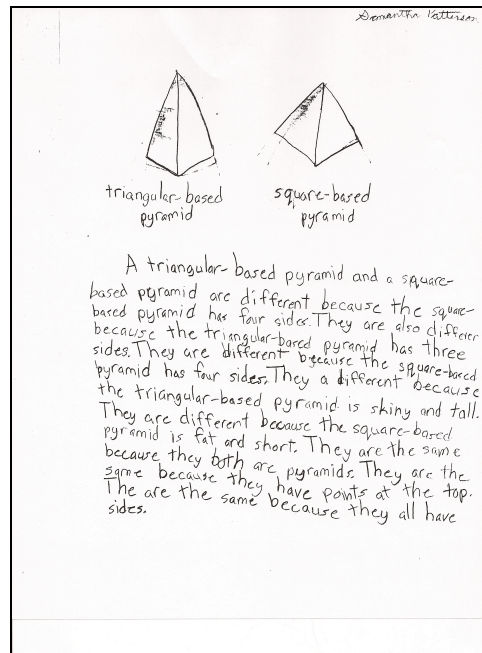 Samantha Patterson
triangular-based
pyramid
square-based
pyramid
A triangular-based pyramid and a square-
based pyramid are different because the square-
based pyramid has four sides. They are also differer
because the triangular-based pyramid has three
sides. They are different because the square-based
pyramid has four sides. They a different because
the triangular-based pyramid is skiny and tall.
They are different because the square-based
pyramid is fat and short. They are the same
because they both are pyramids. They are the
same because they have points at the top.
The are the same because they all have
sides.